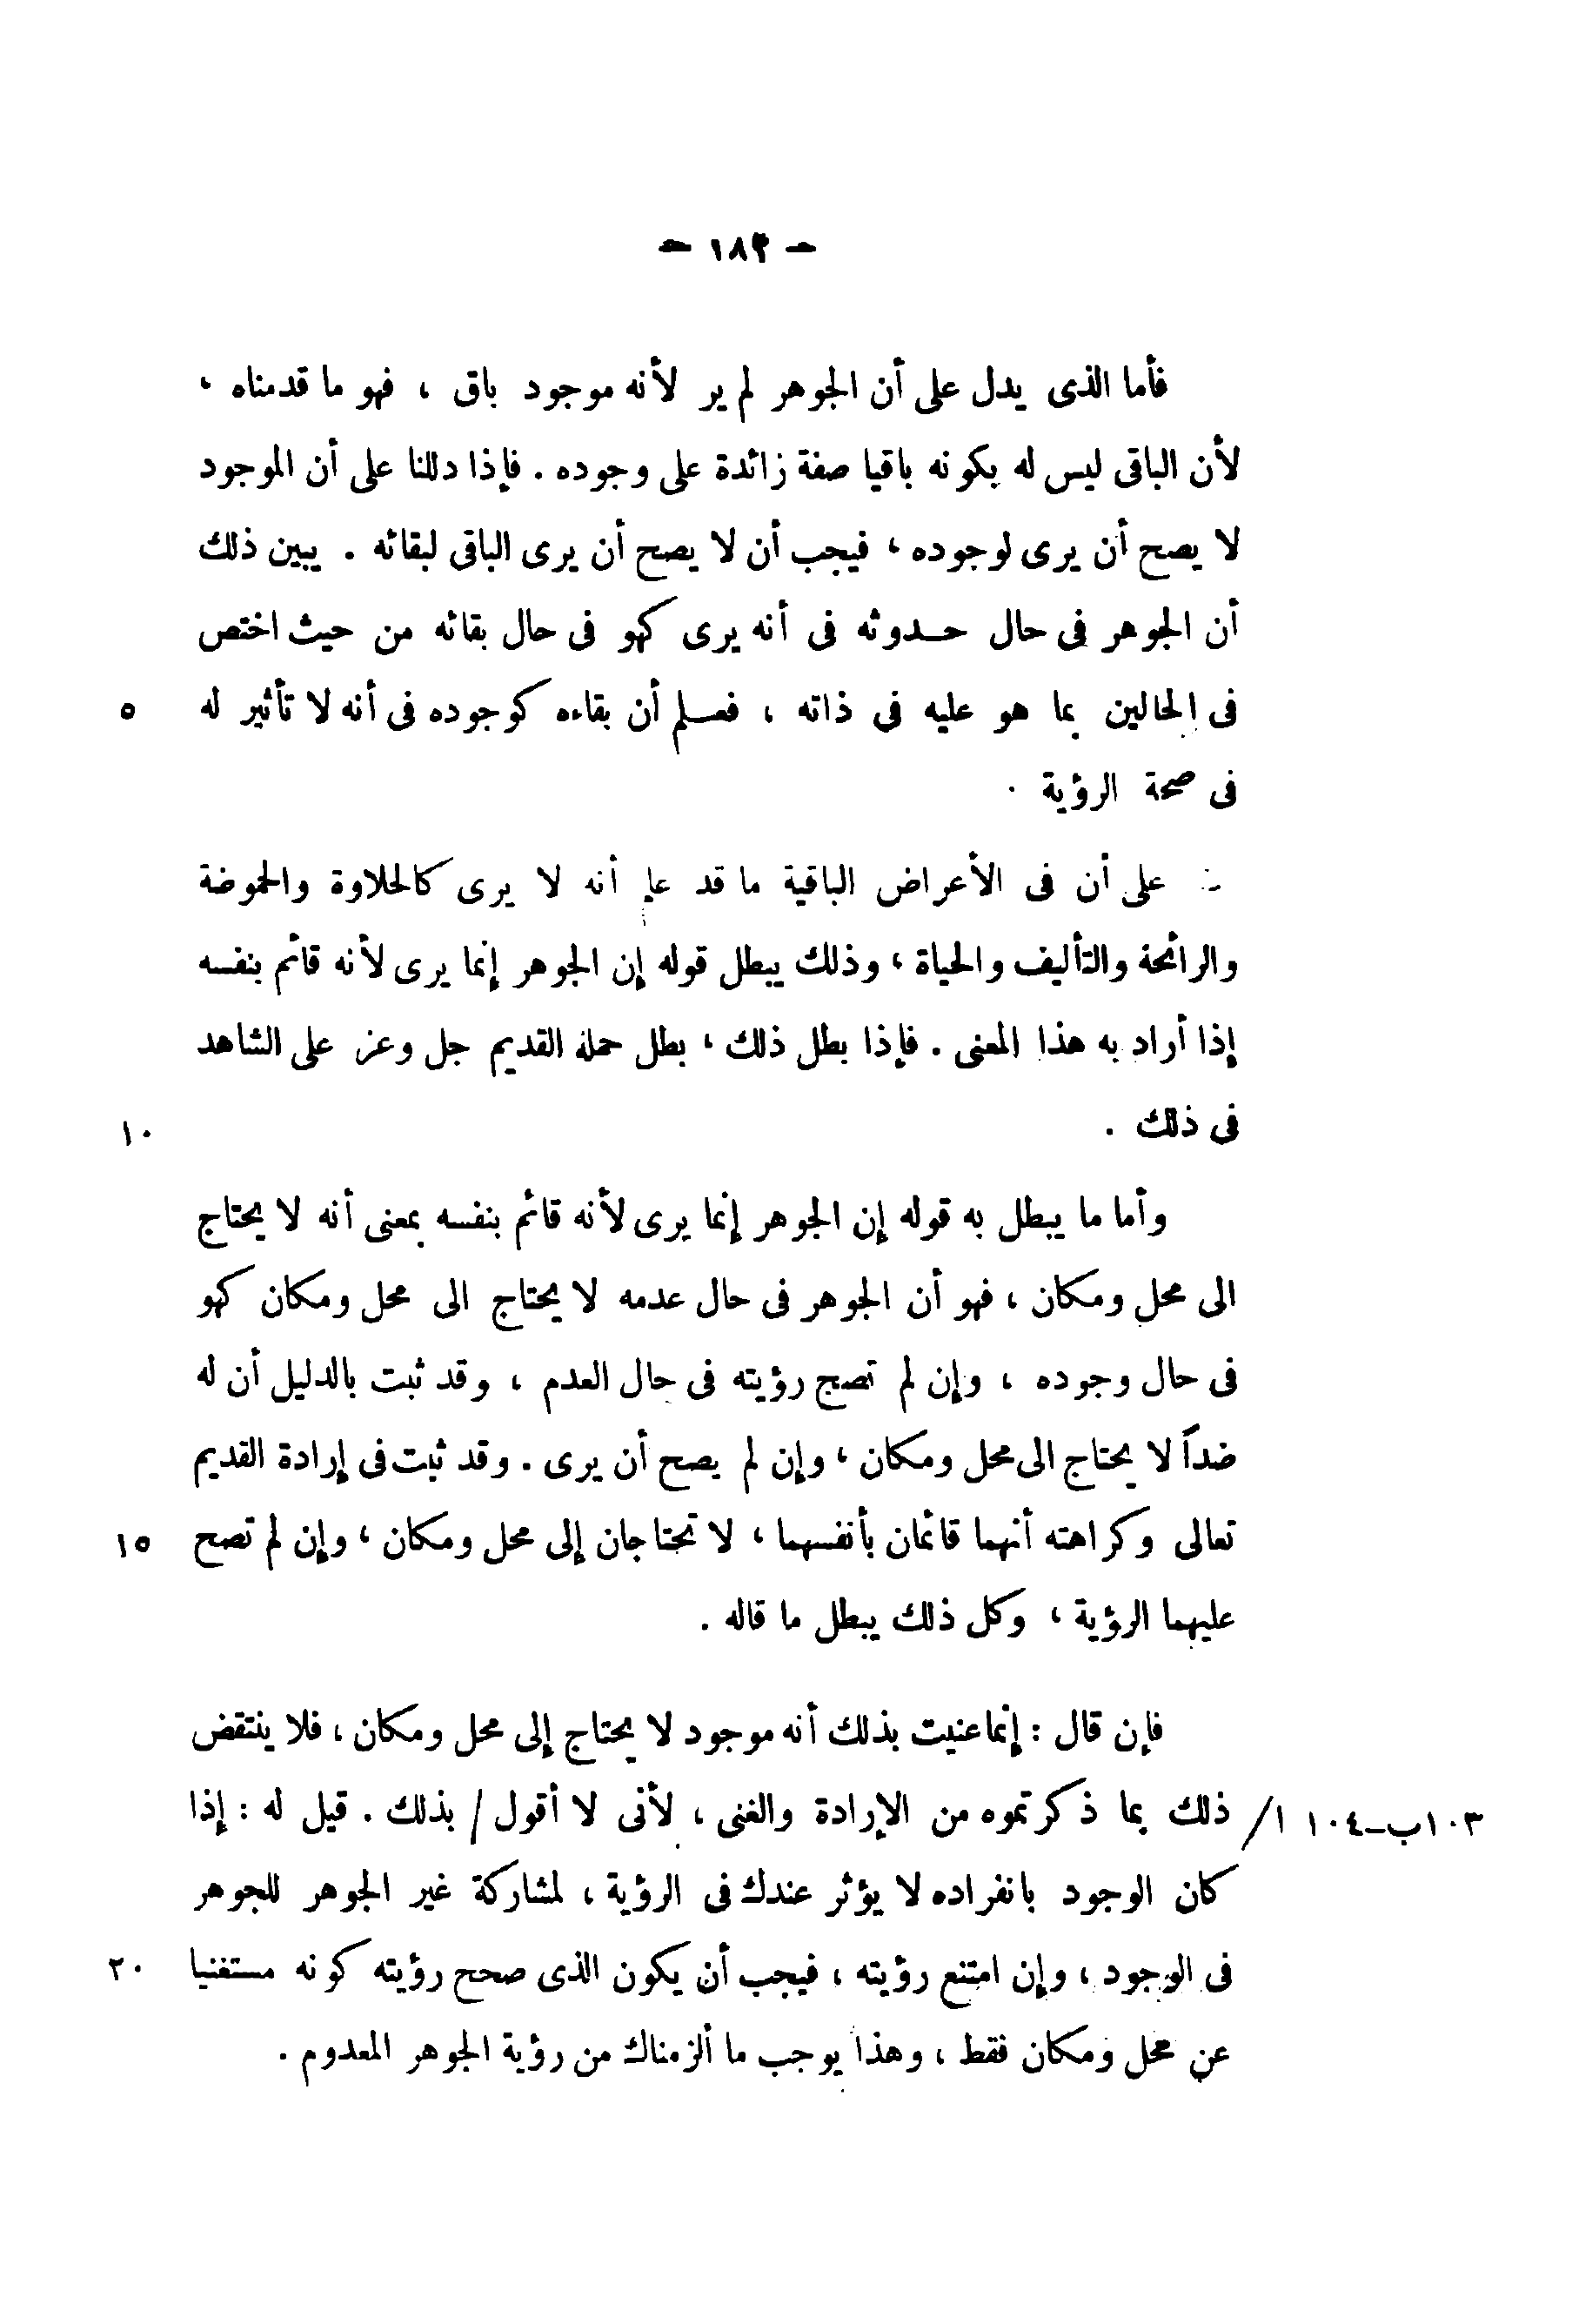 — ١٨٣ —
فأما الذى يدل على أن الجوهر لم ير لأنه موجود باق ، فهو ما قدمناه ،
لأن الباقى ليس له بكونه باقيا صفة زائدة على وجوده . فإذا دللنا على أن الموجود
لا يصح أن يرى لوجوده ، فيجب أن لا يصح أن يرى الباقى لبقائه . يبين ذلك
أن الجوهر فى حال حـدوثه فى أنه يرى كهو فى حال بقائه من حيث اختص
فى الحالين بما هو عليه فى ذاته ، فعـلم أن بقاءه كوجوده فى أنه لا تأثير له ٥
فى صحة الرؤية .
على أن فى الأعراض الباقية ما قد علم أنه لا يرى كالحلاوة والحموضة
والرائحة والتأليف والحياة ، وذلك يبطل قوله إن الجوهر إنما يرى لأنه قائم بنفسه
إذا أراد به هذا المعنى . فإذا بطل ذلك ، بطل حمله القديم جل وعز على الشاهد
فى ذلك . ١٠
وأما ما يبطل به قوله إن الجوهر إنما يرى لأنه قائم بنفسه بمعنى أنه لا يحتاج
الى محل ومكان ، فهو أن الجوهر فى حال عدمه لا يحتاج الى محل ومكان كهو
فى حال وجوده ، وإن لم تصح رؤيته فى حال العدم ، وقد ثبت بالدليل أن له
ضداً لا يحتاج الى محل ومكان ، وإن لم يصح أن يرى . وقد ثبت فى إرادة القديم
تعالى وكراهته أنهما قائمان بأنفسهما ، لا تحتاجان إلى محل ومكان ، وإن لم تصح ١٥
عليهما الرؤية ، وكل ذلك يبطل ما قاله .
فإن قال : إنما عنيت بذلك أنه موجود لا يحتاج إلى محل ومكان ، فلا ينتقض
١٠٣ب-١٠٤ ا/ ذلك بما ذكرتموه من الإرادة والغنى ، لأنى لا أقول / بذلك . قيل له : إذا
كان الوجود بانفراده لا يؤثر عندك فى الرؤية ، لمشاركة غير الجوهر للجوهر
فى الوجود ، وإن امتنع رؤيته ، فيجب أن يكون الذى صحح رؤيته كونه مستغنيا ٢٠
عن محل ومكان فقط ، وهذا يوجب ما ألزمناك من رؤية الجوهر المعدوم .